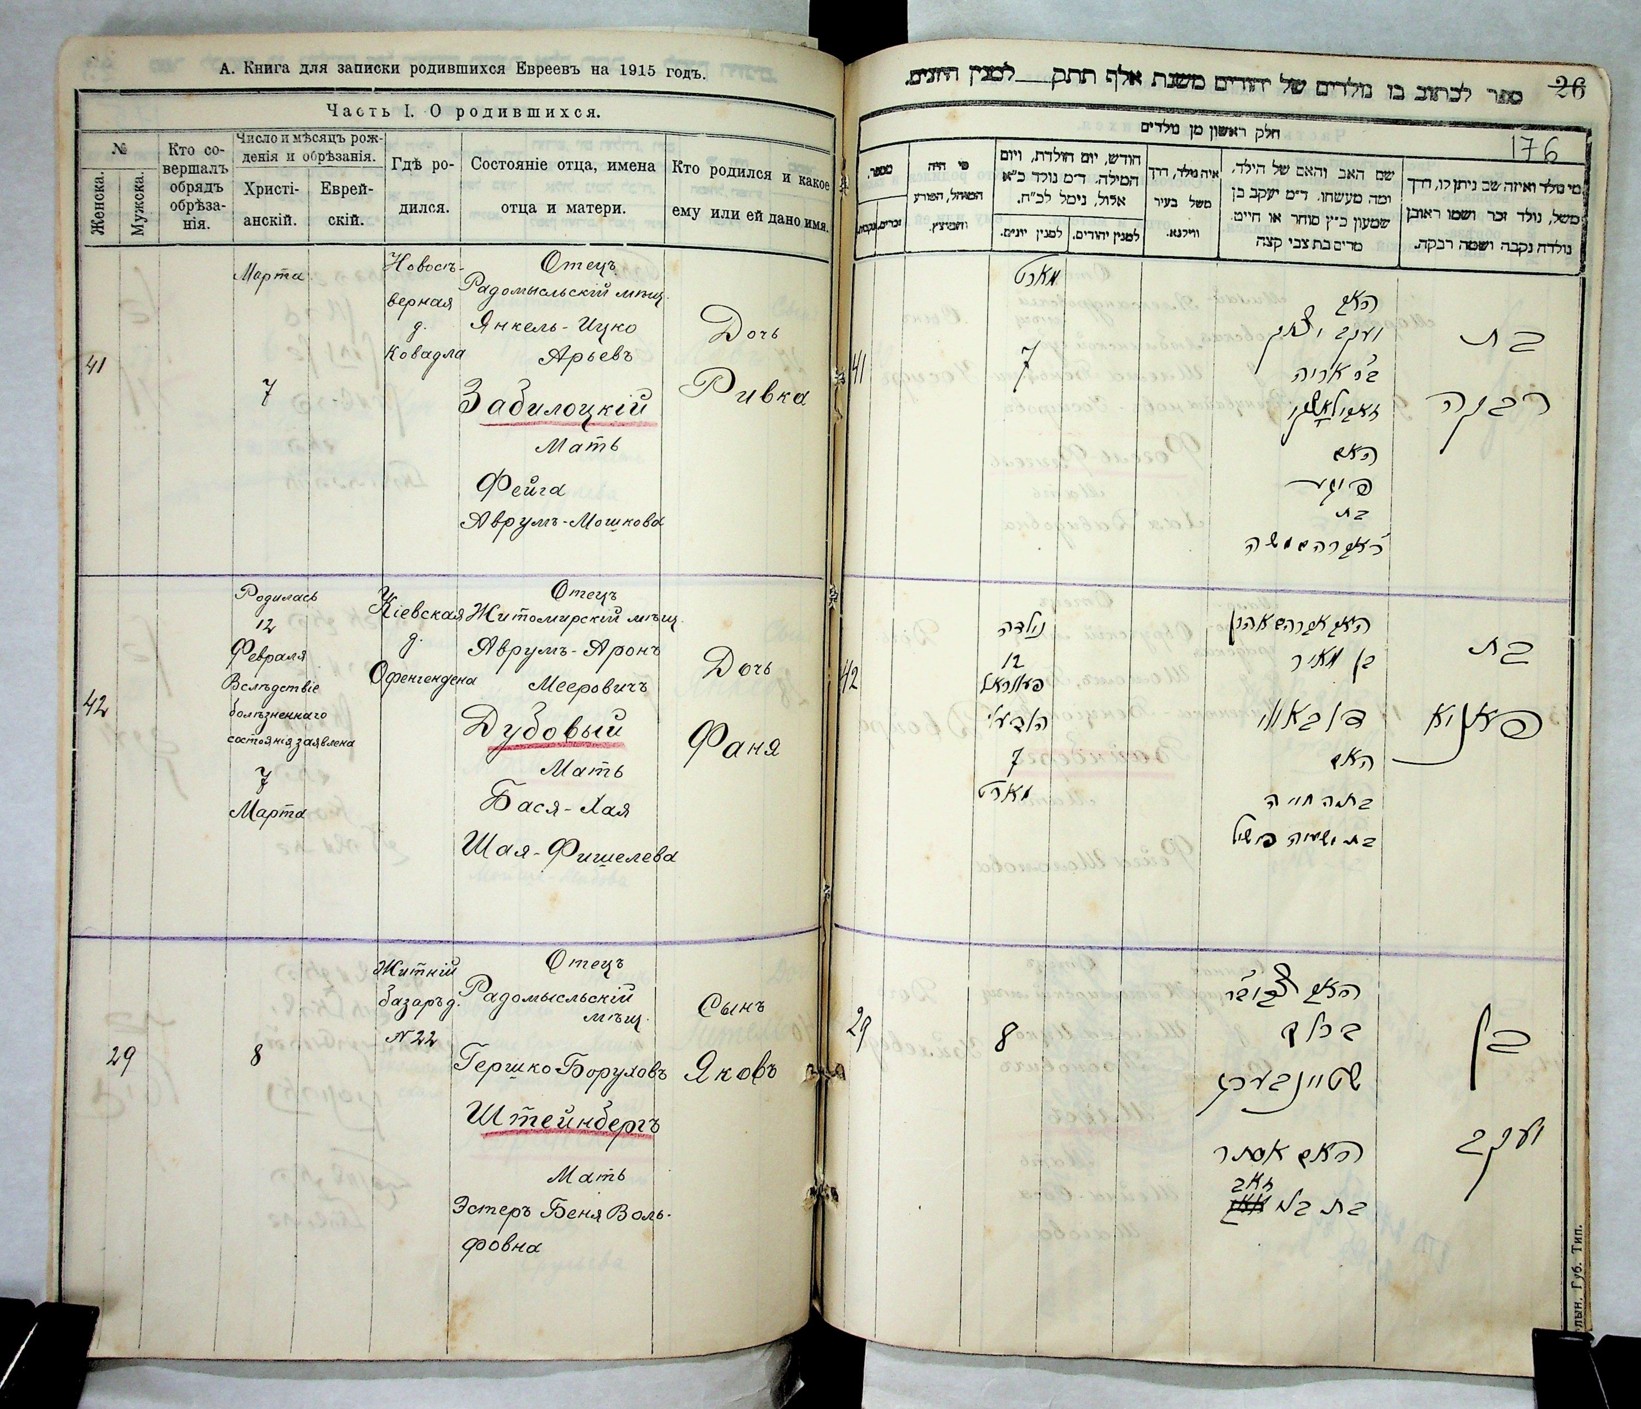 А. Книга для записки родившихся Евреевъ на 1915 годъ.
Часть I. О родившихся.
№
Женска.
Мужска.
Кто со-
вершалъ
обрядъ
обрѣза-
нія.
Число и мѣсяцъ рож-
денія и обрѣзанія.
Христі-
анскій.
Еврей-
скій.
Гдѣ ро-
дился.
Состояніе отца, имена
отца и матери.
Кто родился и какое
ему или ей дано имя.
41
Марта
7
Новосѣ-
верная
д.
Ковадла
Отецъ
Радомысльскій мѣщ.
Янкель-Ицко
Арьевъ
Забилоцкій
Мать
Фейга
Аврумъ-Мошкова
Дочь
Ривка
42
Родилась
12
Февраля
Вслѣдствіе
болѣзненнаго
состоянія заявлена
7
Марта
Кіевская
д.
Офенгендена
Отецъ
Житомирскій мѣщ.
Аврумъ-Аронъ
Мееровичъ
Дубовый
Мать
Бася-Хая
Шая-Фишелева
Дочь
Фаня
29
8
Житній
базаръ д.
N 22
Отецъ
Радомысльскій
мѣщ.
Гершко Боруховъ
Штейнбергъ
Мать
Эстеръ Беня Воль-
фовна
Сынъ
Яковъ
ספר לכתוב בו נולדים של יהודים משנת אלף תתק למנין היונים.
26
176
חלק ראשון מן נולדים
מי נולד ואיזה שם ניתן לו, דרך
משל, נולד זכר ושמו ראובן
נולדה נקבה ושמה רבקה.
שם האב והאם של הילד,
ומה מעשהו. ד״מ יעקב בן
שמעון כ״ץ סוחר או חייט.
מרים בת צבי קצה
איה נולד, דרך
משל בעיר
ווילנא.
חודש, יום הולדת, ויום
המילה. ד״מ נולד כ״א
אלול, נימל לכ״ח.
למנין יהודים.
למנין יונים.
מי היה
המוהל, הפורע
והמוצץ.
מספר.
זכרים.
נקבות.
41
מארט
7
האב
יעקב יצחק
ב״ר אריה
האם
פייגע
בת
בת
רבקה
42
נולדה
12
פעווראל
7
מארט
האב אברהם אהרן
בן מאיר
דובאווי
האם
בתיה חייה
בת ישעיה פישיל
בת
פאניא
29
8
ברוך
שטיינבערג
האם אסתר
זאב
בן
יעקב
Губ. Тип.